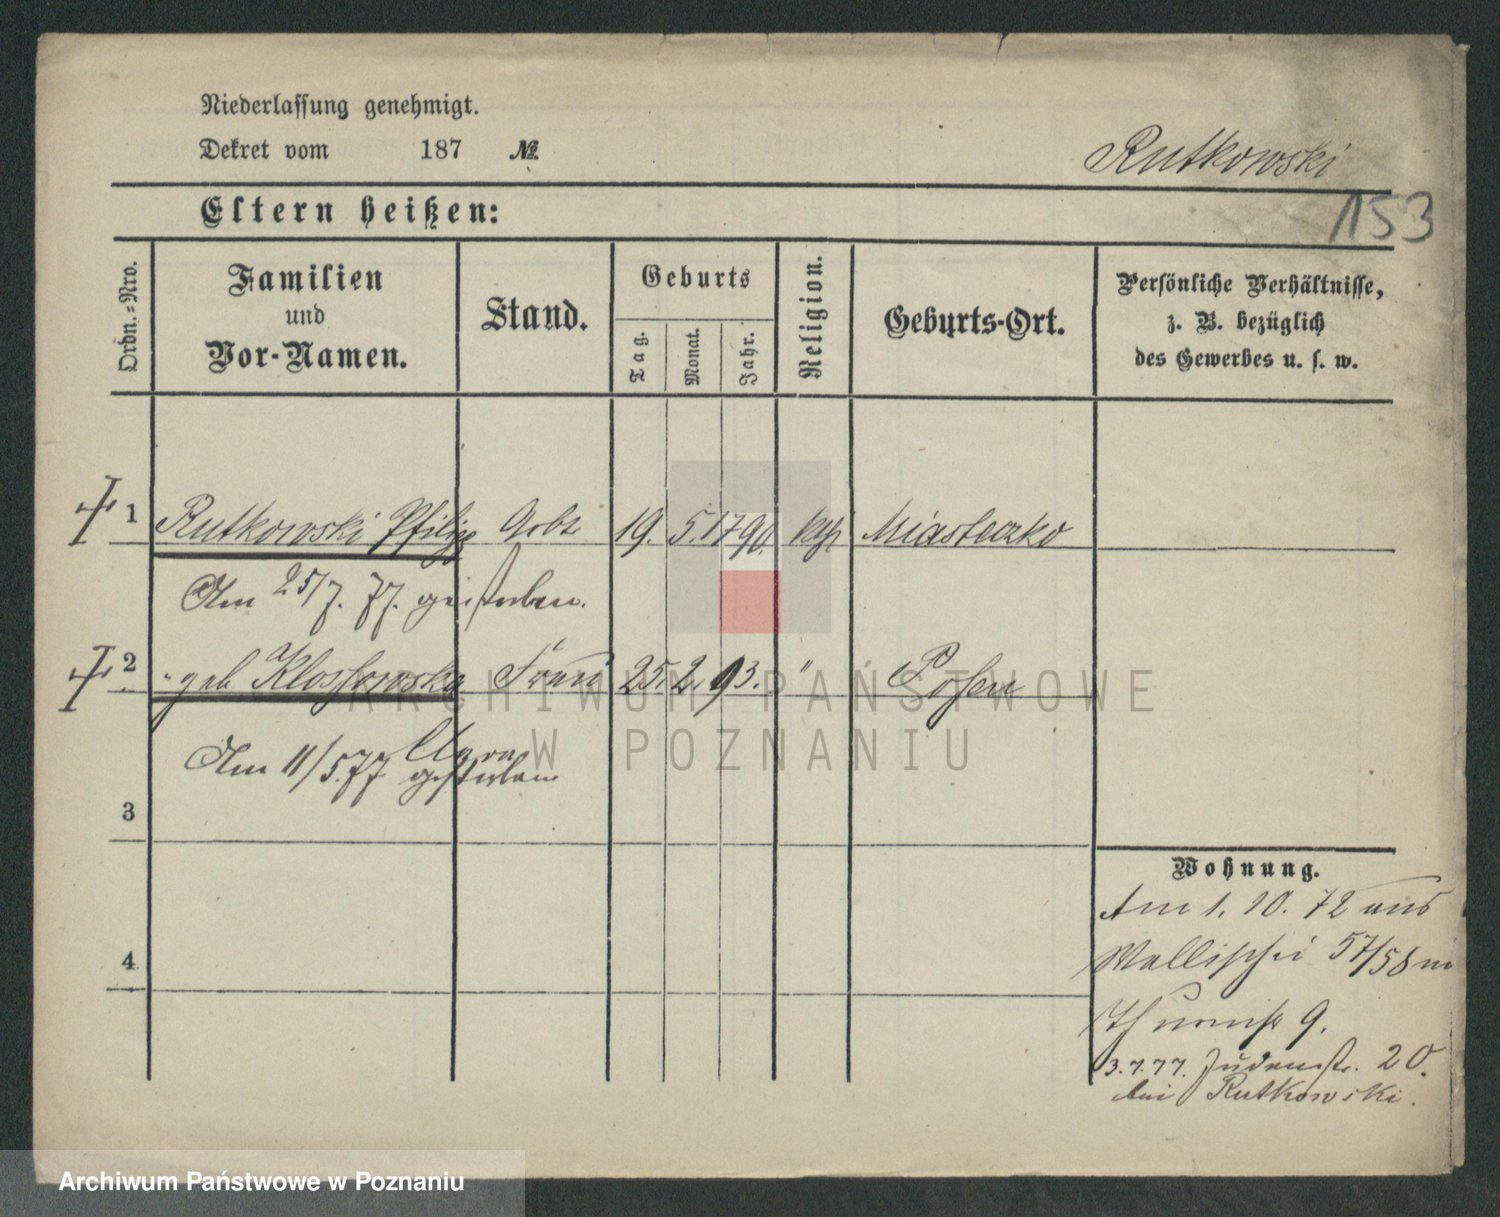 Niederlassung genehmigt.
Dekret vom 187 №
Rutkowski
153
Eltern heißen:
Ordn.-Nro.
Familien
und
Vor-Namen.
Stand.
Geburts
Tag.
Monat.
Jahr.
Religion.
Geburts-Ort.
Persönliche Verhältnisse,
z. B. bezüglich
des Gewerbes u. s. w.
1 Rutkowski Philipp Arbt 19. 5. 1790. kth Miasteczko
Am 25/7. 77. gestorben.
2 geb Klossowska Frau 25. 2. 93. " Posen
Am 11/5.77 gestorben
3
4
Wohnung.
Am 1. 10. 72 aus
Wallischei 57/58 n
Thurmstr 9.
3.7.77. Judenstr. 20.
bei Rutkowski.
ARCHIWUM PAŃSTWOWE
W POZNANIU
Archiwum Państwowe w Poznaniu